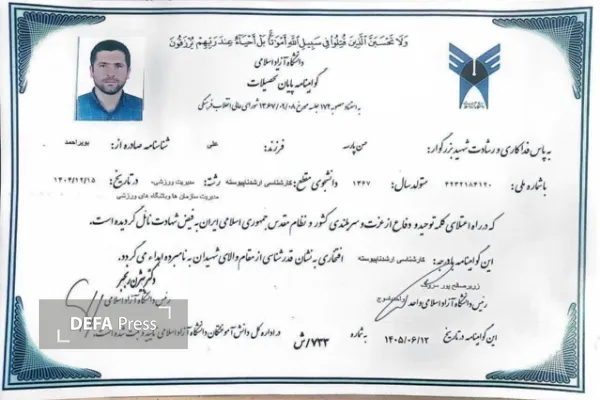 وَلَا تَحْسَبَنَّ الَّذِينَ قُتِلُوا فِي سَبِيلِ اللَّهِ أَمْوَاتًا بَلْ أَحْيَاءٌ عِندَ رَبِّهِمْ يُرْزَقُونَ
دانشگاه آزاد اسلامی
گواهینامه پایان تحصیلات
به استناد مصوبه ۱۷۴ جلسه مورخ ۱۳۶۷/۰۹/۰۸ شورای عالی انقلاب فرهنگی
به پاس فداکاری و رشادت شهید بزرگوار: حسن پارسه فرزند: علی شناسنامه صادره از: بویراحمد
با شماره ملی: ۴۲۳۲۱۸۴۱۲۰ متولد سال: ۱۳۶۷ دانشجوی مقطع: کارشناسی ارشدناپیوسته رشته: مدیریت ورزشی- در تاریخ: ۱۴۰۴/۱۲/۱۵
مدیریت سازمان ها وباشگاه های ورزشی
که در راه اعتلای کلمه توحید و دفاع از عزت و سربلندی کشور و نظام مقدس جمهوری اسلامی ایران به فیض شهادت نائل گردیده است.
این گواهینامه با درجه: کارشناسی ارشدناپیوسته افتخاری به نشان قدرشناسی از مقام والای شهیدان به نامبرده اهداء می گردد.
دکتر بیژن رنجبر
رئیس دانشگاه آزاد اسلامی
رئیس دانشگاه آزاد اسلامی واحد یاسوج
DEFA Press
این گواهینامه در تاریخ ۱۴۰۵/۰۶/۱۲ به شماره ۷۳۳/ش در اداره کل دانش آموختگان دانشگاه آزاد اسلامی تایید و ثبت شده است.